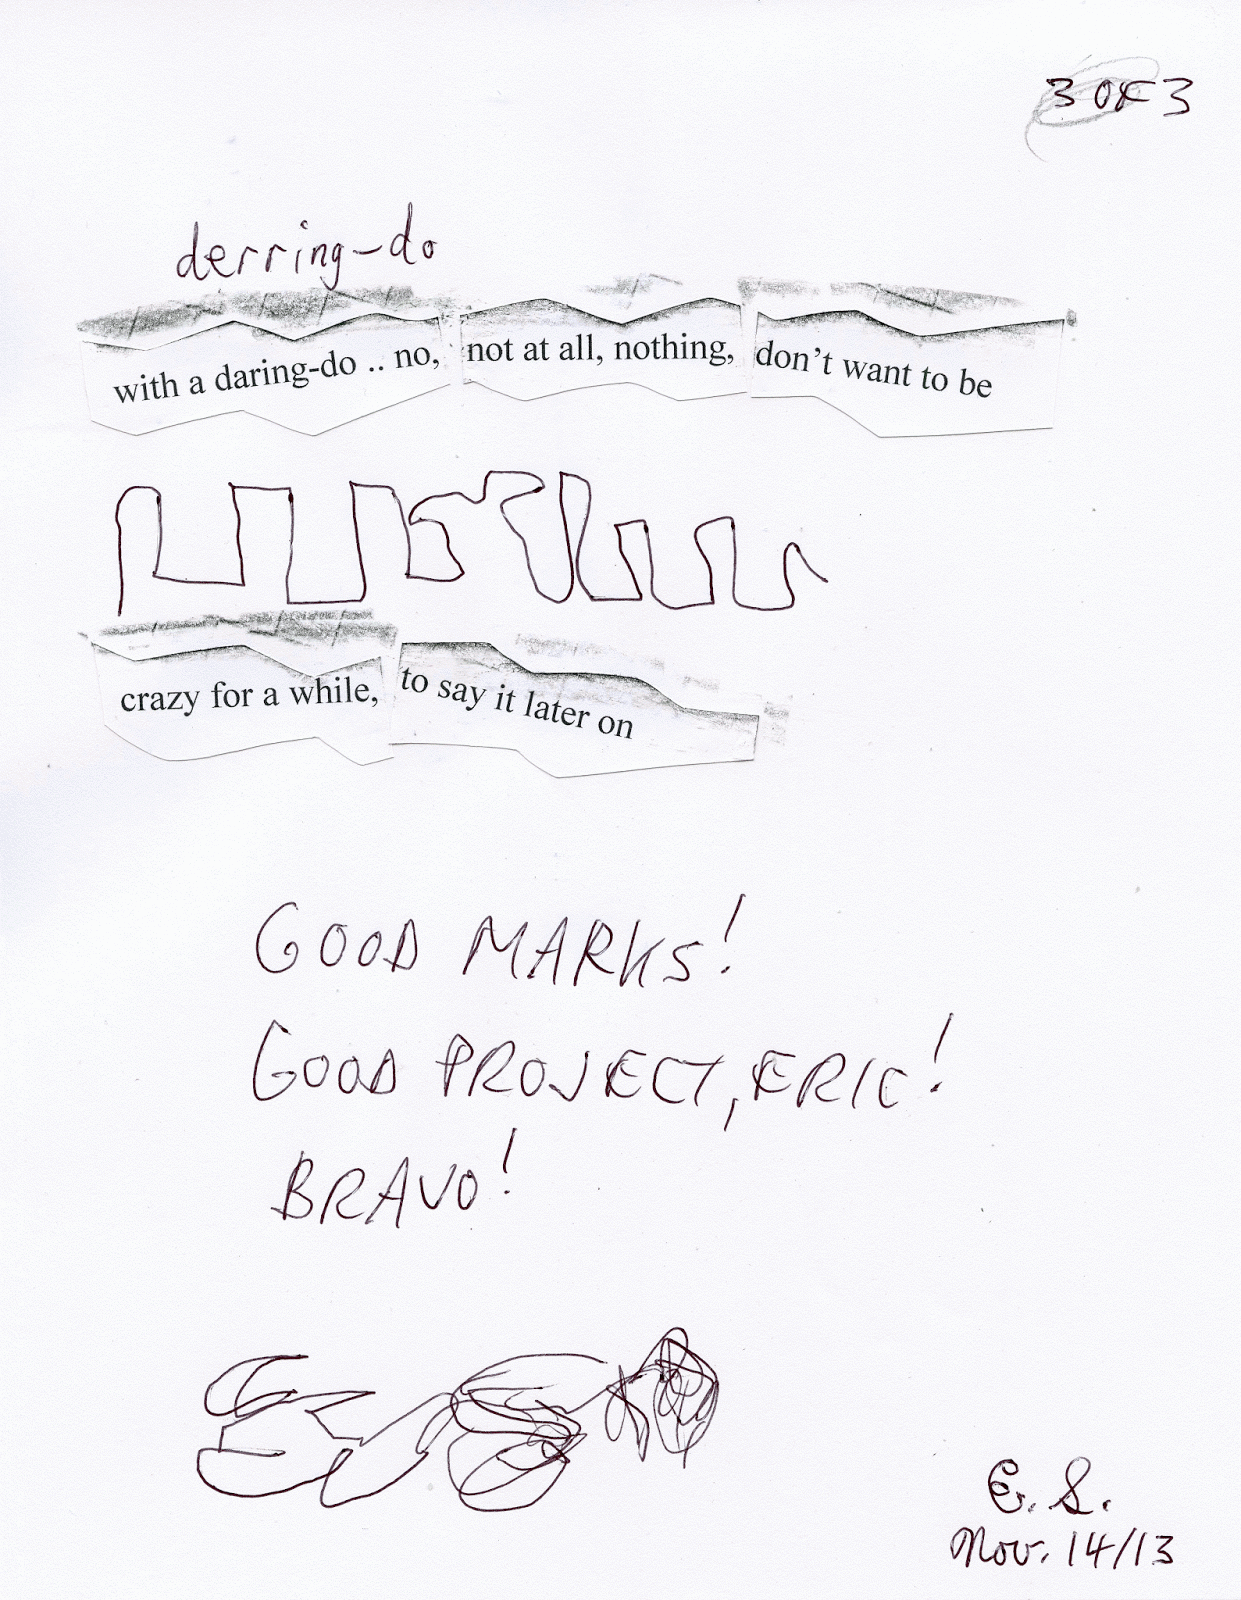 3 OF 3
derring-do
with a daring-do .. no, not at all, nothing, don't want to be
crazy for a while, to say it later on
GOOD MARKS!
GOOD PROJECT, ERIC!
BRAVO!
E. S.
Nov. 14/13